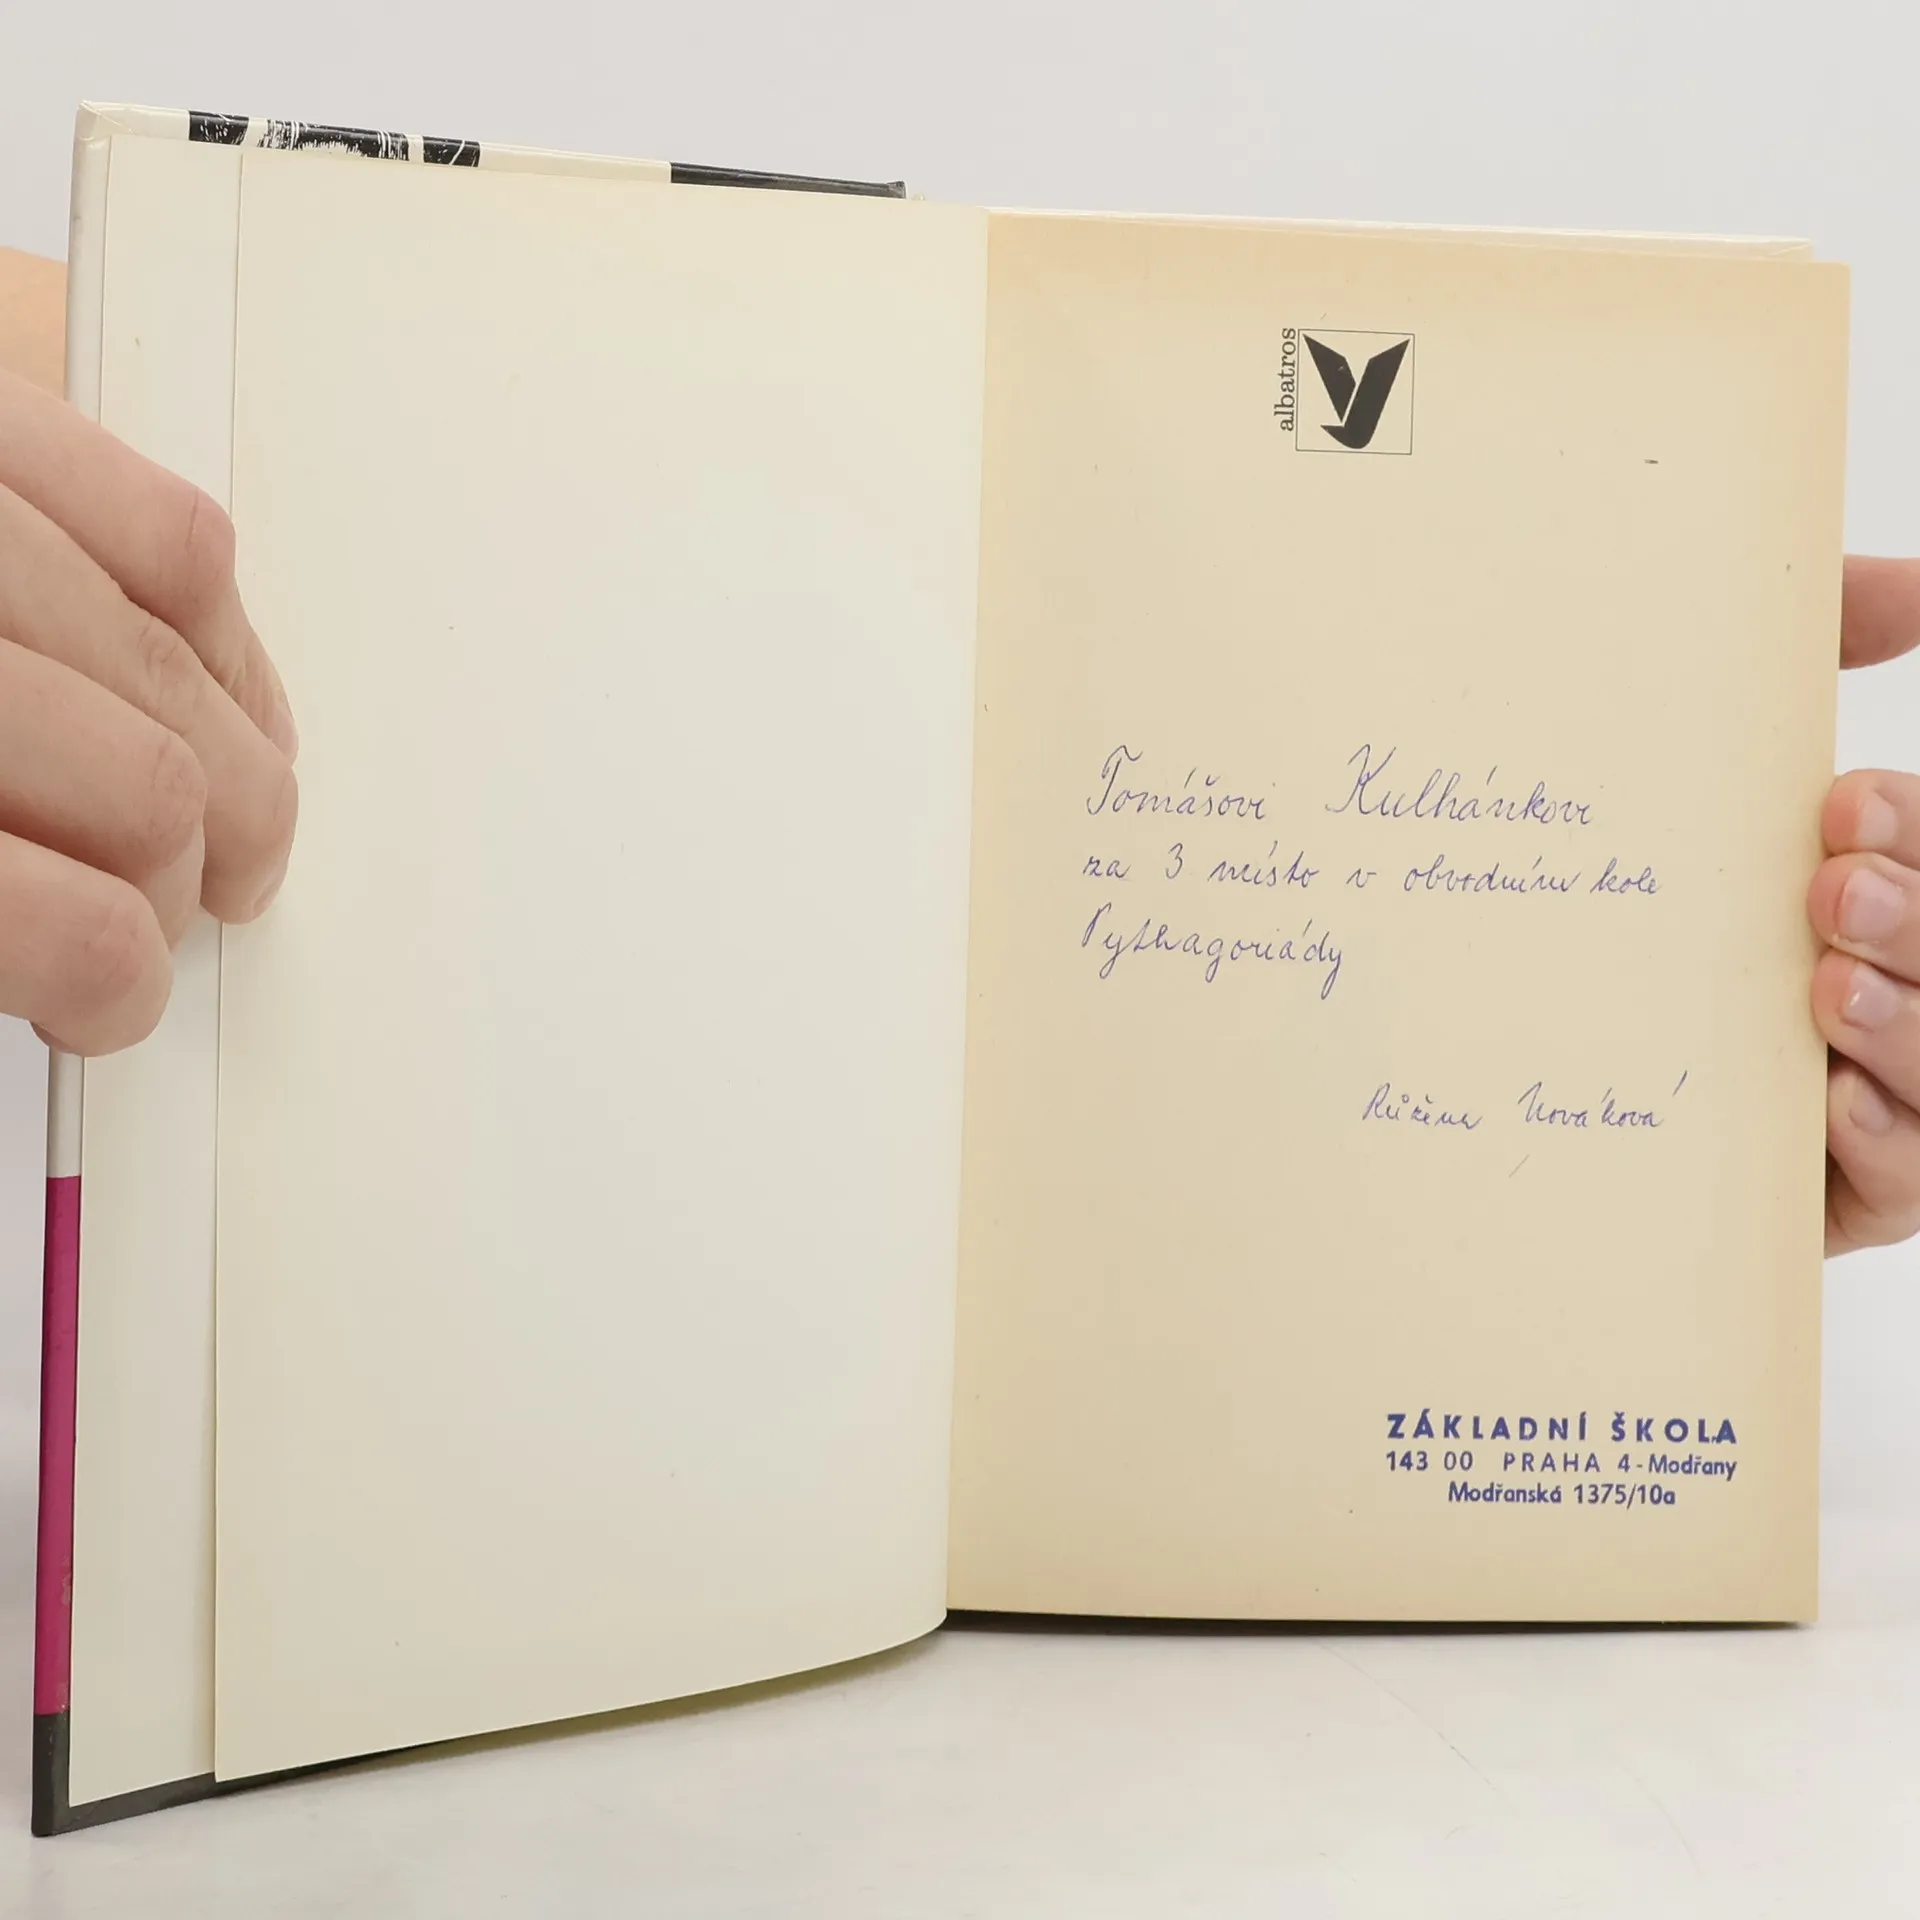 albatros
Tomášovi Kulhánkovi
za 3 místo v obvodním kole
Pythagoriády
Růžena Nováková
ZÁKLADNÍ ŠKOLA
143 00 PRAHA 4 - Modřany
Modřanská 1375/10a